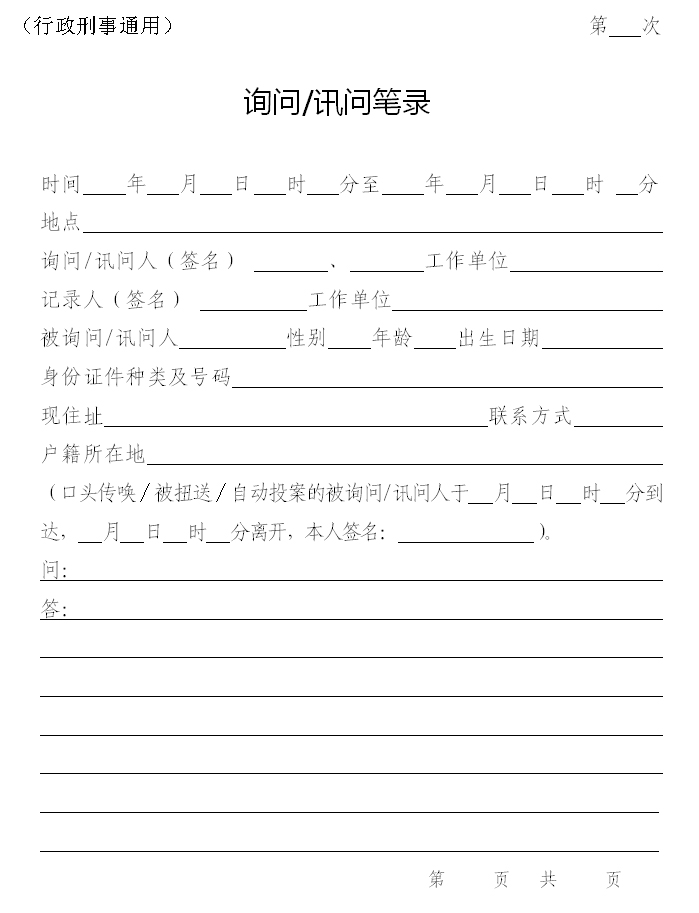 （行政刑事通用） 第___次
询问/讯问笔录
时间____年___月___日___时___分至____年___月___日___时__分
地点
询问/讯问人（签名）_______、_______工作单位
记录人（签名）__________工作单位
被询问/讯问人__________性别____年龄____出生日期
身份证件种类及号码
现住址____________________联系方式
户籍所在地
（口头传唤/被扭送/自动投案的被询问/讯问人于__月__日__时__分到
达，__月__日__时__分离开，本人签名：____________）。
问：
答：
第 页 共 页